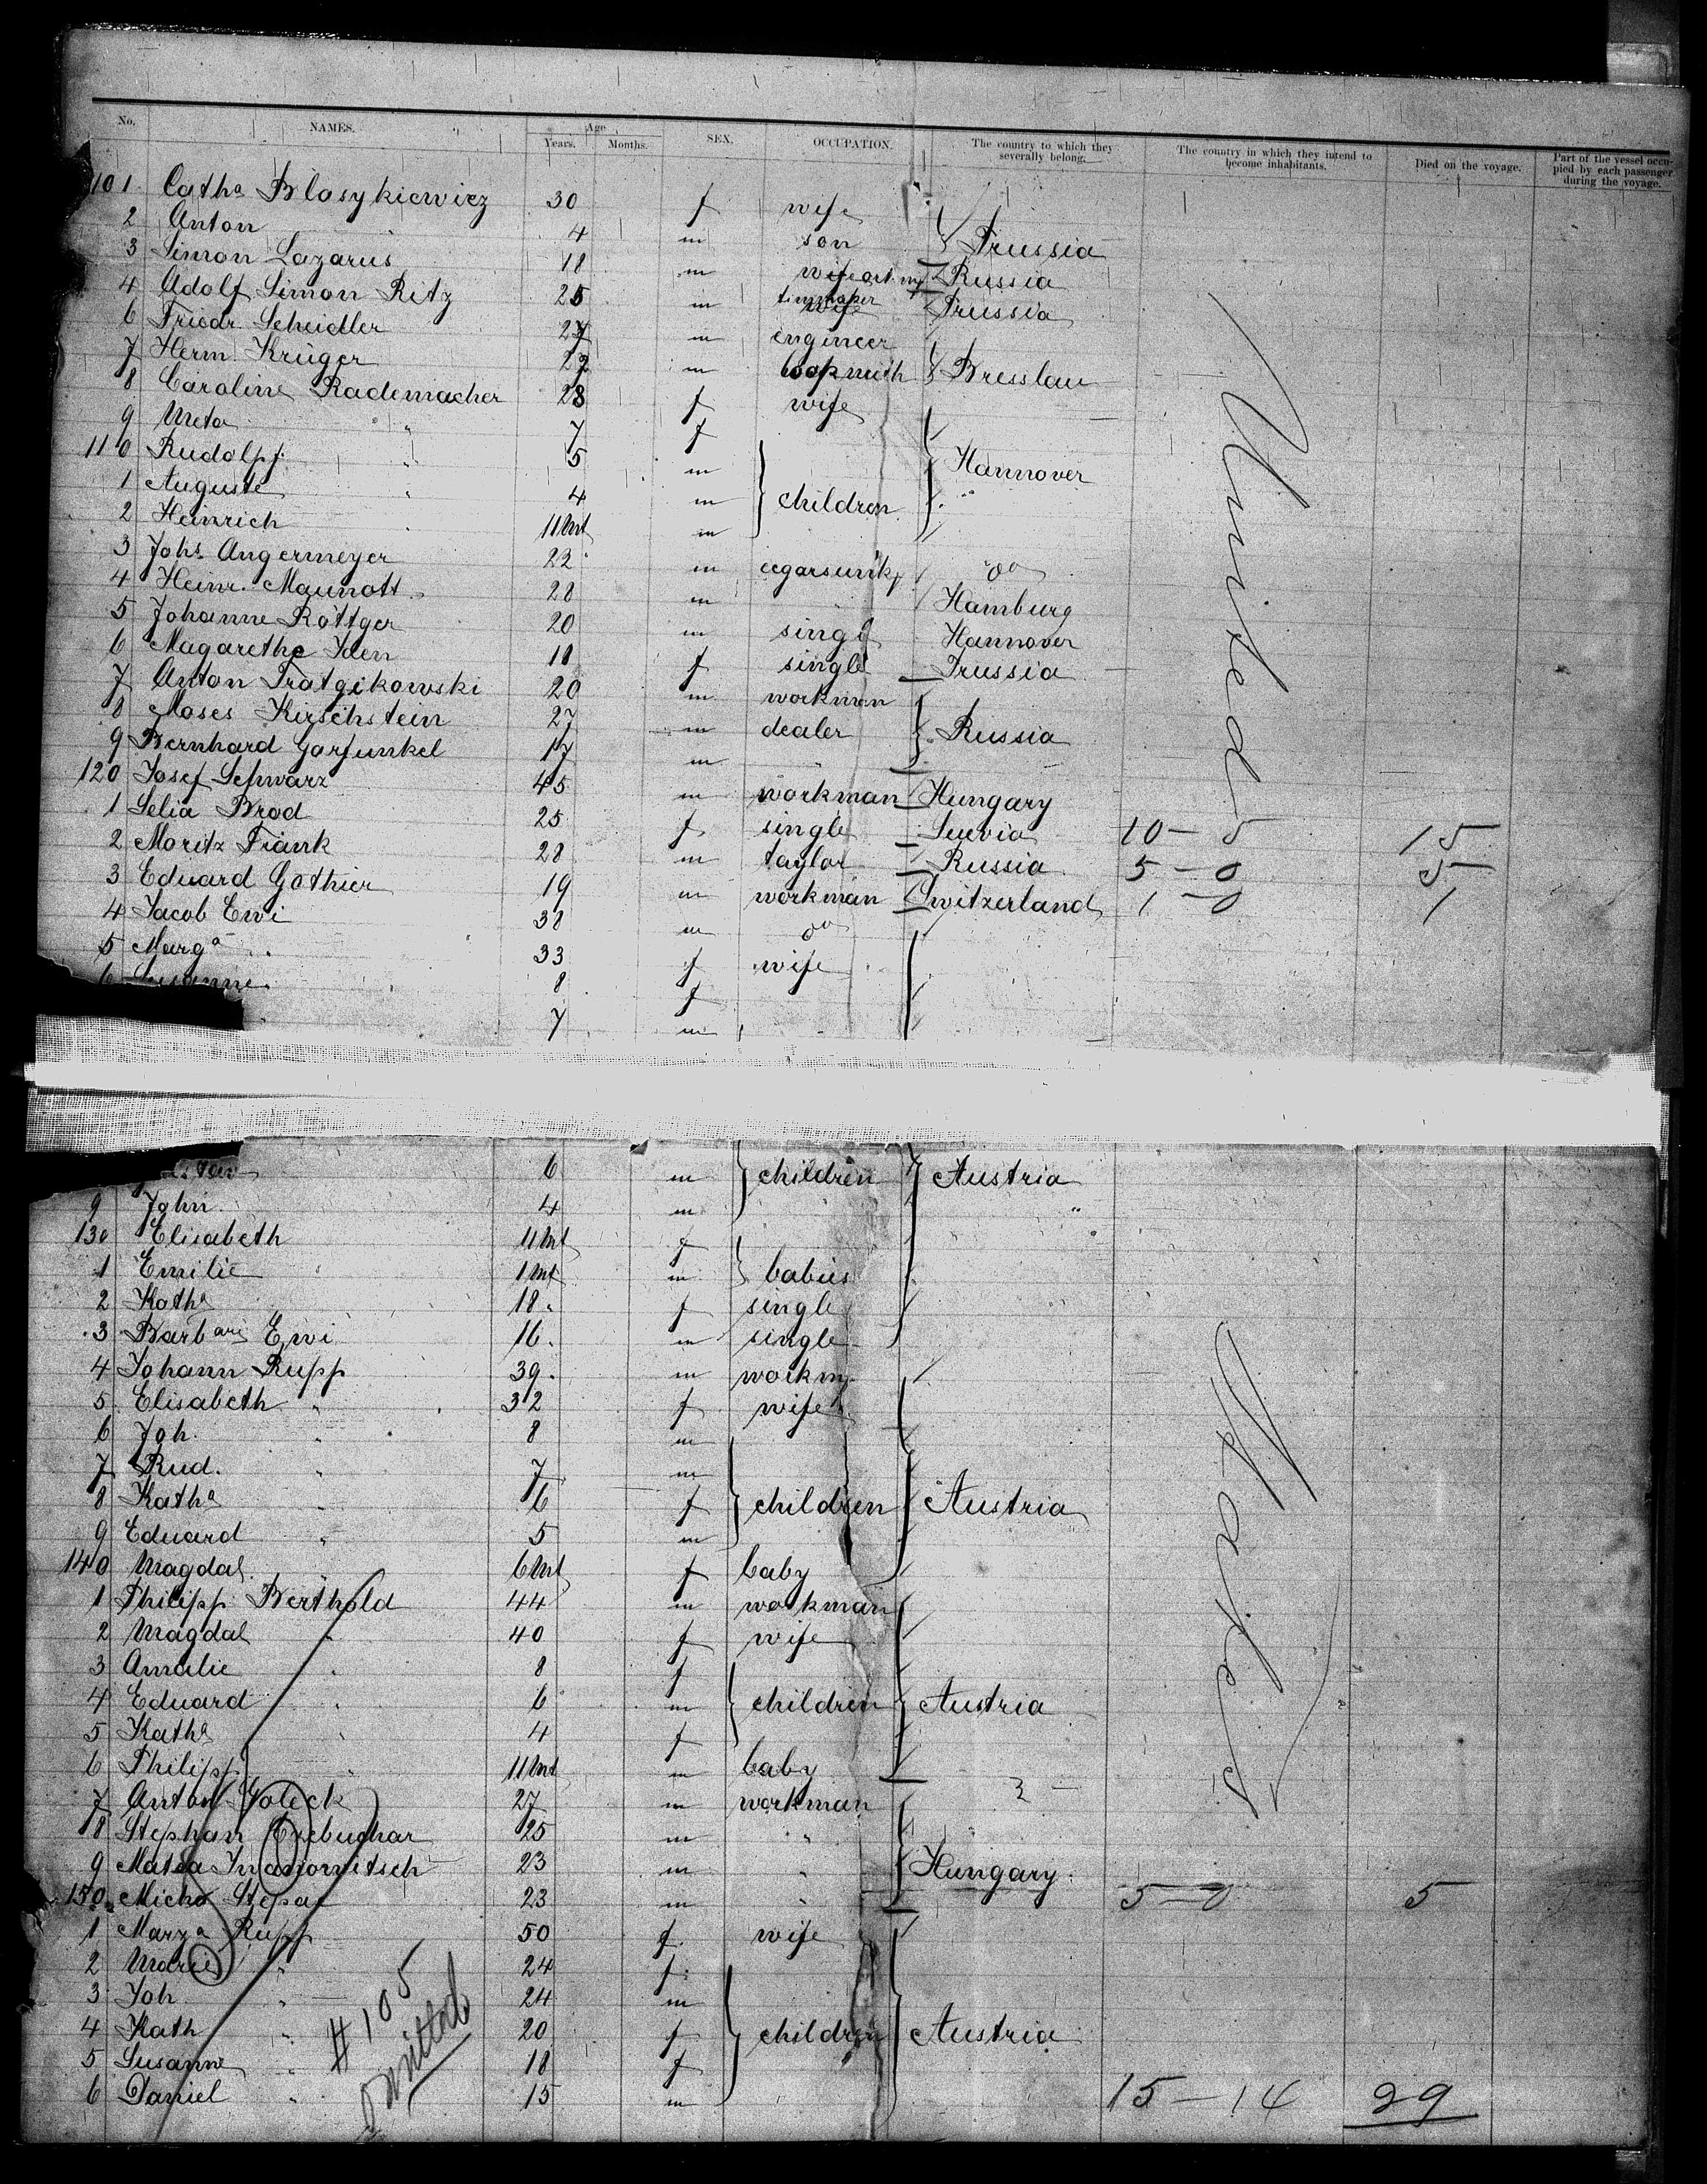 No. NAMES. Age Years. Months. SEX. OCCUPATION. The country to which they severally belong. The country in which they intend to become inhabitants. Died on the voyage. Part of the vessel occupied by each passenger during the voyage.
101 Cath.a Blasykiewicz 30 f wife
2 Anton 4 m son Prussia
3 Simon Lazarus 18 m Russia
4 Adolf Simon Ritz 25 m tinmaker Prussia
6 Friedr. Scheidler 27 m engineer
7 Herm. Krüger 27 m Bresslau
8 Caroline Rademacher 28 f wife
9 Meta " 7 f
110 Rudolpf " 5 m Hannover
1 Auguste " 4 m children
2 Heinrich 11 Mt m
3 Johs. Angermeyer 22 m do
4 Heinr. Maunott 28 m Hamburg
5 Johanne Röttger 20 m singl Hannover
6 Magarethe Iden 18 f single Prussia
7 Anton Tratgikowski 20 m workman
8 Moses Kirschstein 27 m dealer Russia
9 Bernhard Garfunkel 17 m "
120 Josef Schwarz 45 m workman Hungary
1 Selia Brod 25 f single 10 - 5 15
2 Moritz Frank 28 m taylor Russia 5 - 0 5
3 Eduard Gothier 19 m workman Switzerland 1 - 0 1
4 Jacob Ewi 38 m do
5 Marg.a " 33 f wife
6 Susanne 8 f
7 m
6 m children Austria
9 John 4 m
130 Elisabeth 11 Mt f
1 Emilie " 1 Mt m babies
2 Kath.a 18 f single
3 Barbara Ewi 16 m single
4 Johann Rupp 39 m workm
5 Elisabeth " 32 f wife
6 Joh. " 8 m
7 Rud. " 7 m
8 Kath.a " 6 f children Austria
9 Eduard " 5 m
140 Magdal. 6 Mt f baby
1 Philipp Berthold 44 m workman
2 Magdal " 40 f wife
3 Amalie " 8 f
4 Eduard " 6 m children Austria
5 Kath.a " 4 f
6 Philipp " 11 Mt m baby
7 Anton Goleck 27 m workman
8 Stephan 25 m "
9 Matia Iwanowitsch 23 m " Hungary
150 Micho Stepan 23 m " 5 - 0 5
1 Marg.a Rupp 50 f wife
2 Marie " 24 f
3 Joh " 24 m
4 Kath " 20 f children Austria
5 Susanne " 18 f
6 Daniel " 15 m 15 - 14 29
United
States
#105
omitted